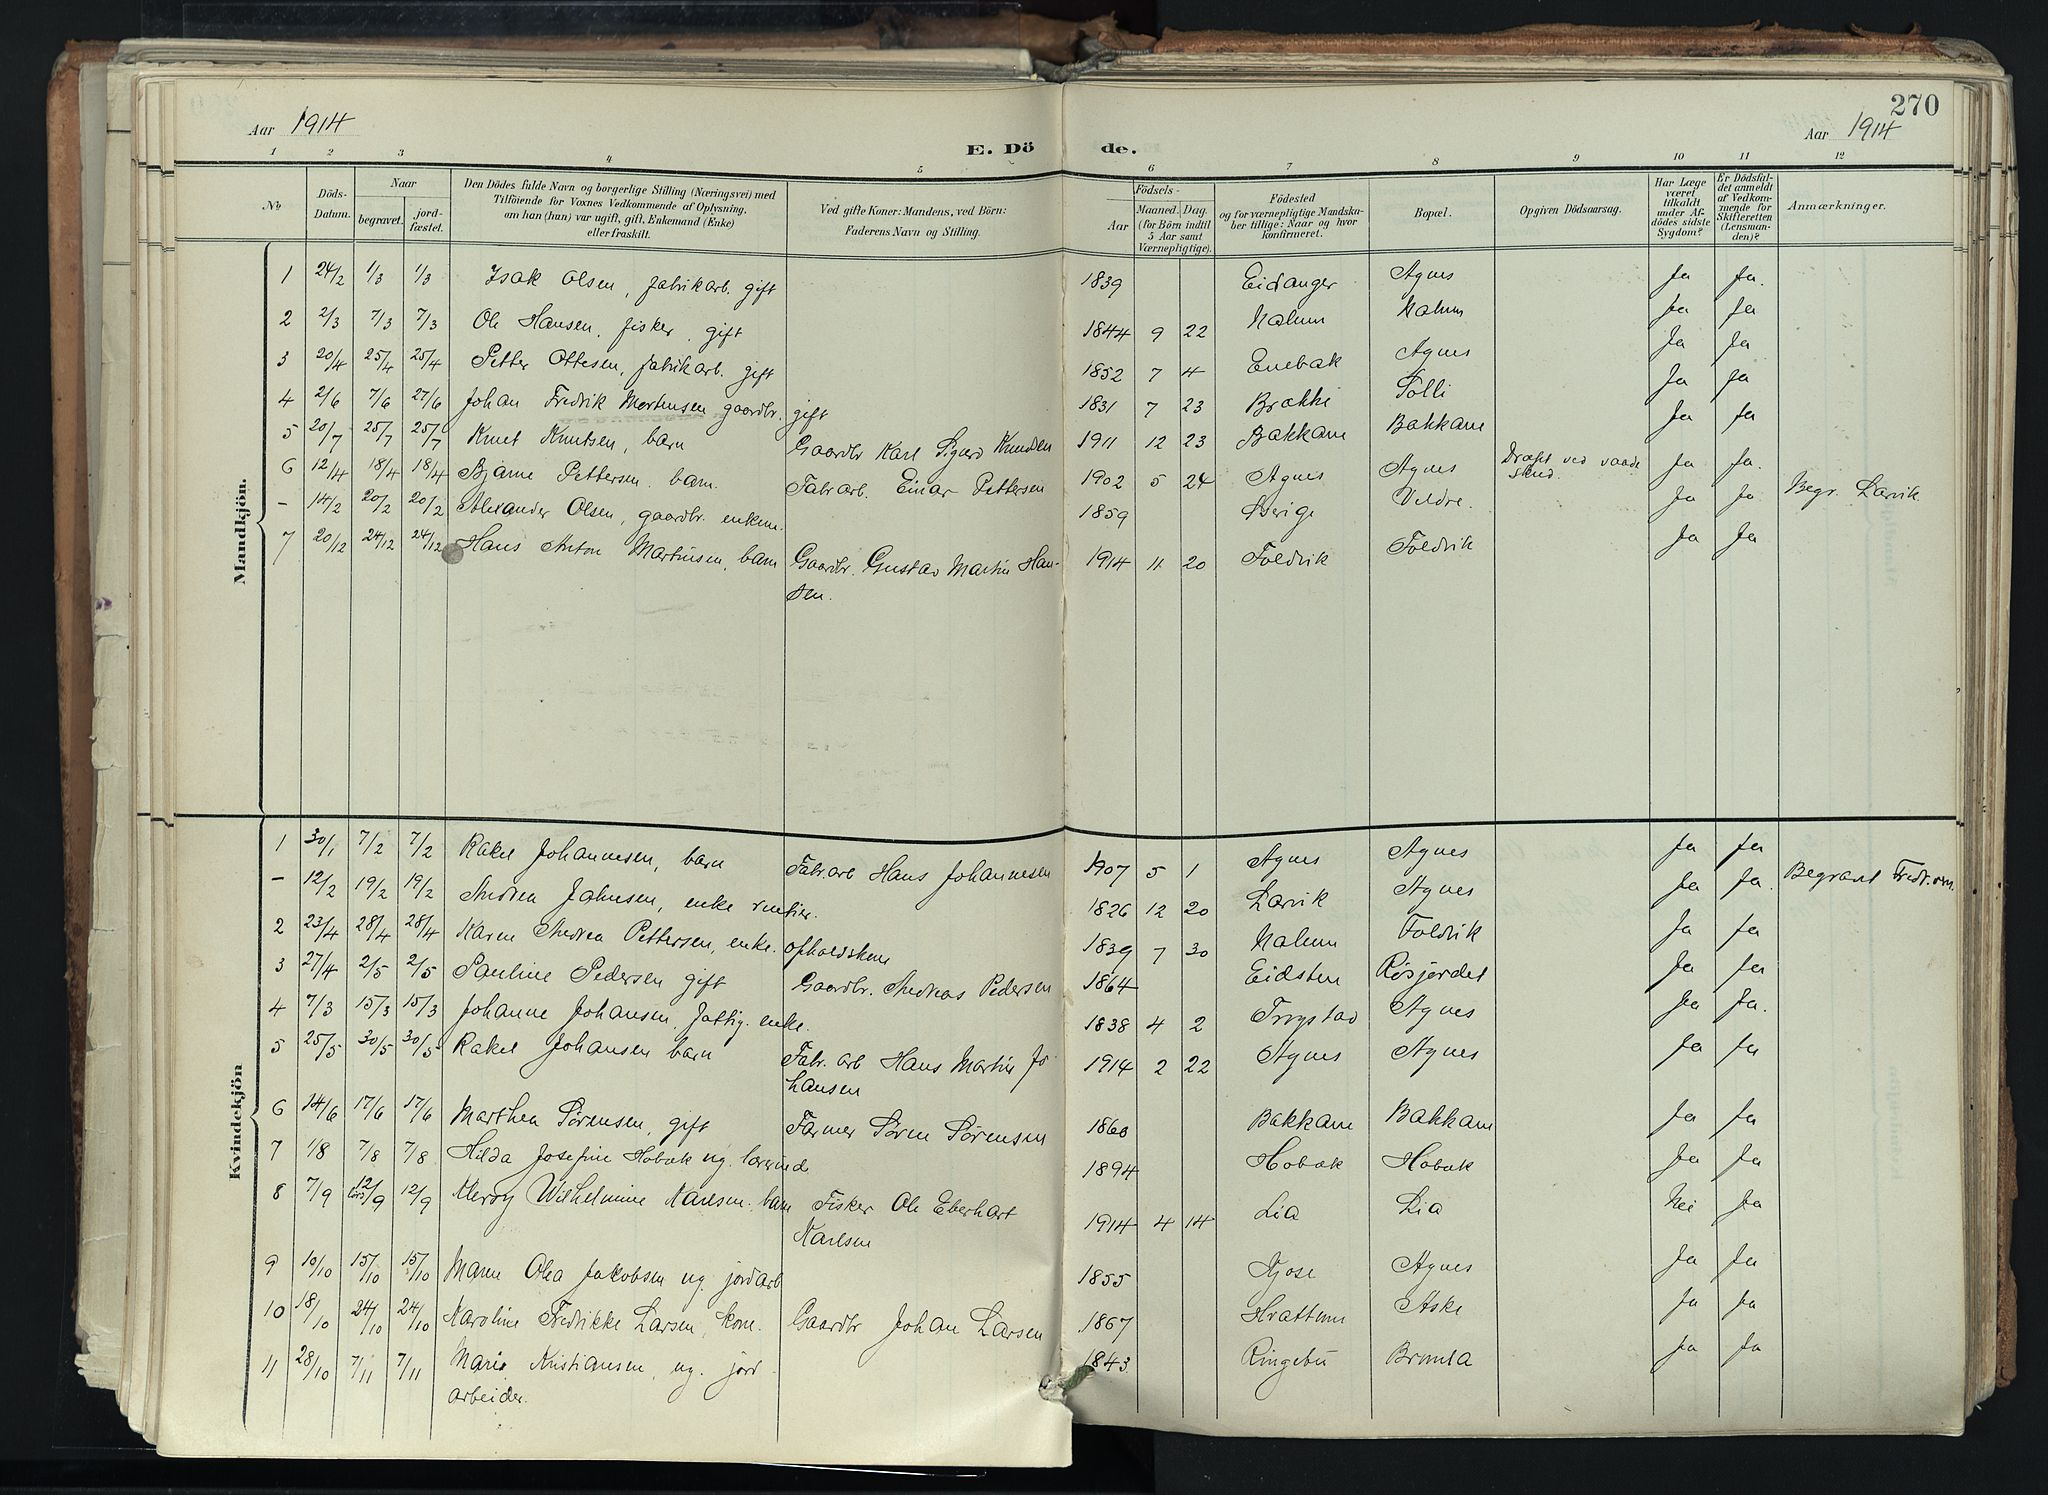 270
Aar 1914
Aar 1914
E. Dö de.
1 2 3 4 5 6 7 8 9 10 11 12
No.
Döds-Datum.
Naar
begravet.
jord-fæstet.
Den Dödes fulde Navn og borgerlige Stilling (Næringsvei) med
Tilföiende for Voxnes Vedkommende af Oplysning,
om han (hun) var ugift, gift, Enkemand (Enke)
eller fraskilt.
Ved gifte Koner: Mandens, ved Börn:
Faderens Navn og Stilling.
Födsels-
Aar
Maaned. Dag.
(for Börn indtil
5 Aar samt
Værnepligtige).
Födested
og for værnepligtige Mandska-
ber tillige: Naar og hvor
konfirmeret.
Bopæl.
Opgiven Dödsaarsag.
Har Læge
været
tilkaldt
under Af-
dödes sidste
Sygdom?
Er Dödsfal-
det anmeldt
af Vedkom-
mende for
Skifteretten
(Lensman-
den)?
Anmærkninger.
Mandkjön.
1 24/2 1/3 1/3 Isak Olsen, fabrikarb. gift 1839 Eidanger Agnes Ja Ja.
2 2/3 7/3 7/3 Ole Hansen, fisker, gift 1844 9 22 Nalum Nalum Ja Ja
3 20/4 25/4 25/4 Petter Ottesen, fabrikarb. gift 1852 7 4 Enebak Agnes Ja Ja
4 2/6 7/6 27/6 Johan Fredrik Martinsen, gaardbr. gift 1831 7 23 Brække Solli Ja Ja
5 20/7 25/7 25/7 Knut Knutsen, barn Gaardbr Karl Sigurd Knudsen 1911 12 23 Bakkane Bakkane Ja Ja
6 12/4 18/4 18/4 Bjarne Pettersen. barn. Fabr arb. Einar Pettersen 1902 5 24 Agnes Agnes Dræpt ved vaade
skud. Ja Ja.
- 14/2 20/2 20/2 Alexander Olsen, gaardbr. enkem. 1859 Sverige Veldre. Ja Ja Begr. Larvik
7 20/12 24/12 24/12 Hans Anton Martinsen, barn Gaardbr. Gustav Martin Han-
sen. 1914 11 20 Foldvik Foldvik Ja Ja
Kvindekjön
1 30/1 7/2 7/2 Rakel Johannesen, barn Fabr.arb Hans Johannesen 1907 5 1 Agnes Agnes Ja Ja
- 12/2 19/2 19/2 Andrea Jahnsen, enke rentier. 1826 12 20 Larvik Agnes Ja Ja. Begravet Fredr.vern.
2 23/4 28/4 28/4 Karen Andrea Pettersen, enke. opholdskone 1839 7 30 Nalum Foldvik Ja Ja
3 27/4 2/5 2/5 Pauline Pedersen gift Gaardbr. Andreas Pedersen 1864 Eidsten Røsjordet Ja Ja
4 7/3 15/3 15/3 Johanne Johansen, fattig. enke. 1838 4 2 Trygstad Agnes Ja Ja.
5 25/5 30/5 30/5 Rakel Johansen barn Fabr. arb Hans Martin Jo
hansen 1914 2 22 Agnes Agnes Ja Ja
6 14/6 17/6 17/6 Marthea Sørensen, gift Farmer Søren Sørensen 1860 Bakkane Bakkane Ja Ja
7 1/8 7/8 7/8 Hilda Josefine Hobæk ug. lærerinde 1894 Hobæk Hobæk Ja Ja
8 7/9 12/9 12/9 Mercy Wilhelmine Karlsen. barn Fisker Ole Eberhart
Karlsen 1914 4 14 Lia Lia Nei Ja
9 10/10 15/10 15/10 Maren Olea Jakobsen ug. jordarb 1855 Kjose Agnes Ja Ja
10 18/10 24/10 24/10 Karoline Fredrikke Larsen, kone. Gaardbr Johan Larsen 1867 Hvattum Aske Ja Ja
11 28/10 7/11 7/11 Maria Kristiansen, ug. jord
arbeider. 1843 Ringebu Bromla Ja Ja